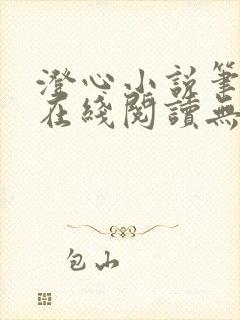 澄心小说筆
在綫閱讀無
包山